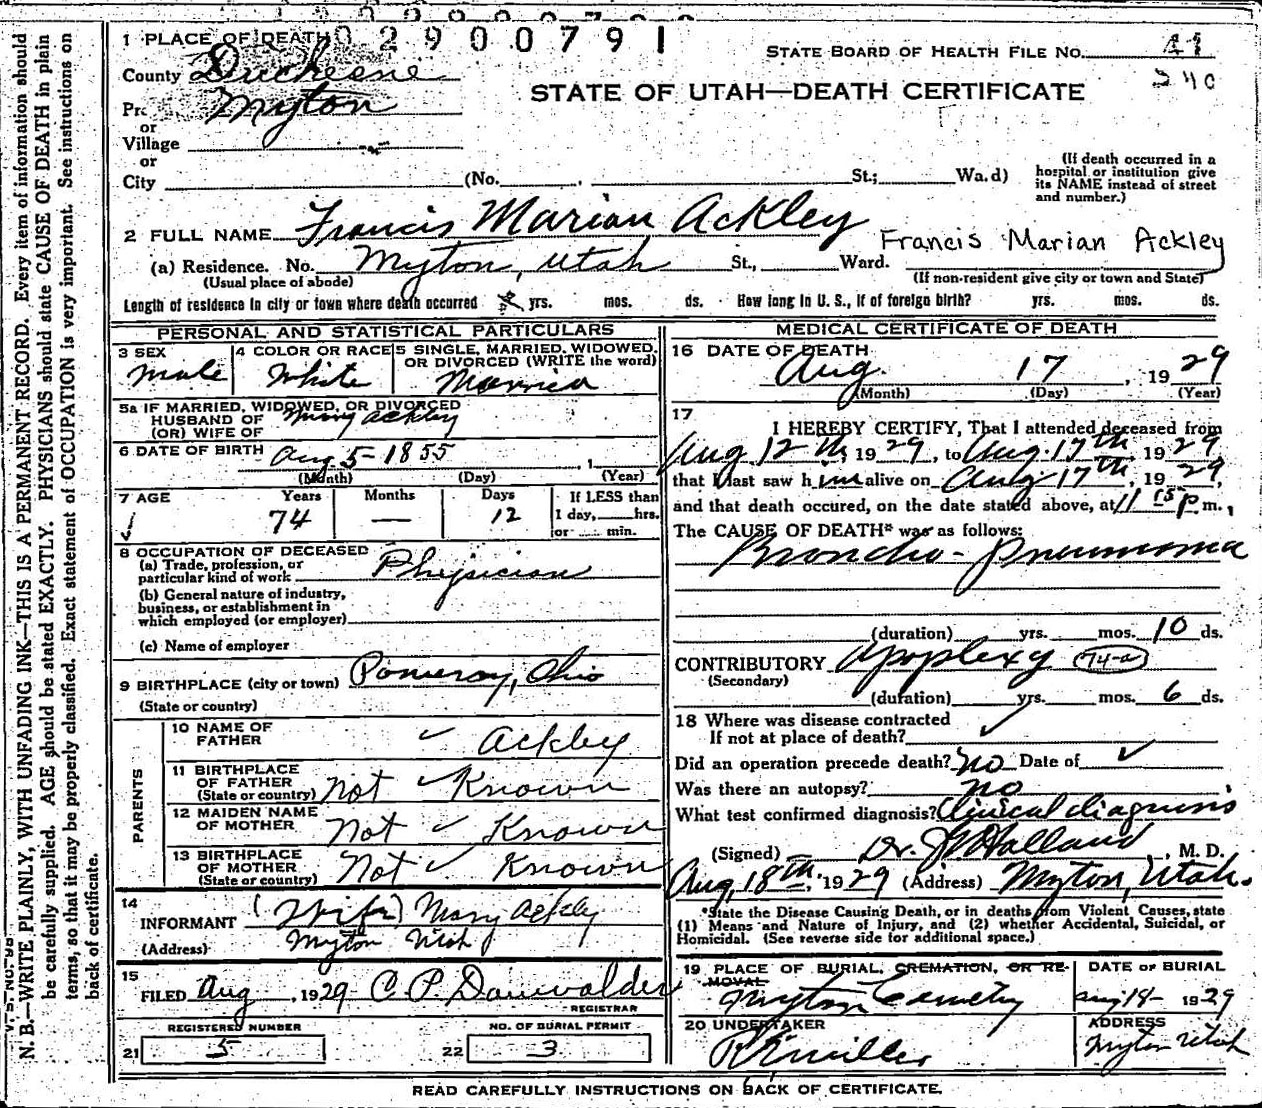 0290079 1
1 PLACE OF DEATH
STATE BOARD OF HEALTH FILE NO. 41
County Duchesne
240
STATE OF UTAH—DEATH CERTIFICATE
Pr. Myton
or
Village
or
City (No. St.; Wa.d)
(If death occurred in a hospital or institution give its NAME instead of street and number.)
2 FULL NAME Francis Marian Ackley
Francis Marian Ackley
(a) Residence. No. Myton, Utah St., Ward.
(Usual place of abode) (If non-resident give city or town and State)
Length of residence in city or town where death occurred yrs. mos. ds. How long in U. S., if of foreign birth? yrs. mos. ds.
PERSONAL AND STATISTICAL PARTICULARS
3 SEX Male
4 COLOR OR RACE White
5 SINGLE, MARRIED, WIDOWED, OR DIVORCED (WRITE the word) Married
5a IF MARRIED, WIDOWED, OR DIVORCED
HUSBAND OF Mary Ackley
(OR) WIFE OF
6 DATE OF BIRTH Aug 5 - 1855 , 1
(Month) (Day) (Year)
7 AGE Years Months Days If LESS than
74 — 12 1 day, hrs.
or min.
8 OCCUPATION OF DECEASED
(a) Trade, profession, or
particular kind of work Physician
(b) General nature of industry,
business, or establishment in
which employed (or employer)
(c) Name of employer
9 BIRTHPLACE (city or town) Pomeroy, Ohio
(State or country)
PARENTS
10 NAME OF
FATHER ✓ Ackley
11 BIRTHPLACE
OF FATHER
(State or country) Not ✓ Known
12 MAIDEN NAME
OF MOTHER Not ✓ Known
13 BIRTHPLACE
OF MOTHER
(State or country) Not ✓ Known
14
INFORMANT (Wife) Mary Ackley
(Address) Myton Utah
15
FILED Aug , 1929 C. P. Dauwalder
REGISTRAR
REGISTERED NUMBER NO. OF BURIAL PERMIT
21 5 22 3
MEDICAL CERTIFICATE OF DEATH
16 DATE OF DEATH
Aug. 17 , 19 29
(Month) (Day) (Year)
17
I HEREBY CERTIFY, That I attended deceased from
Aug 12th, 1929, to Aug. 17th, 1929
that I last saw him alive on Aug 17th, 1929,
and that death occured, on the date stated above, at 11 15 P. m.,
The CAUSE OF DEATH* was as follows:
Broncho-Pneumonia
(duration) yrs. mos. 10 ds.
CONTRIBUTORY Apoplexy 74-a
(Secondary)
(duration) yrs. mos. 6 ds.
18 Where was disease contracted
If not at place of death? ✓
Did an operation precede death? no Date of ✓
Was there an autopsy? no
What test confirmed diagnosis? Clinical diagnosis
(Signed) Dr. Holland, M. D.
Aug, 18th, 1929 (Address) Myton, Utah.
*State the Disease Causing Death, or in deaths from Violent Causes, state
(1) Means and Nature of Injury, and (2) whether Accidental, Suicidal, or
Homicidal. (See reverse side for additional space.)
19 PLACE OF BURIAL, CREMATION, OR RE-
MOVAL DATE OF BURIAL
Myton Cemetry Aug 18- 1929
20 UNDERTAKER ADDRESS
Miller Myton Utah
READ CAREFULLY INSTRUCTIONS ON BACK OF CERTIFICATE.
N. B.—WRITE PLAINLY, WITH UNFADING INK—THIS IS A PERMANENT RECORD. Every item of information should
be carefully supplied. AGE should be stated EXACTLY. PHYSICIANS should state CAUSE OF DEATH in plain
terms, so that it may be properly classified. Exact statement of OCCUPATION is very important. See instructions on
back of certificate.